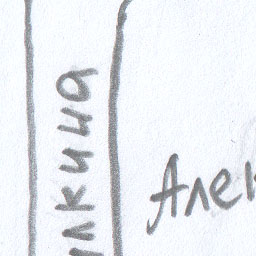 илкина
Алек